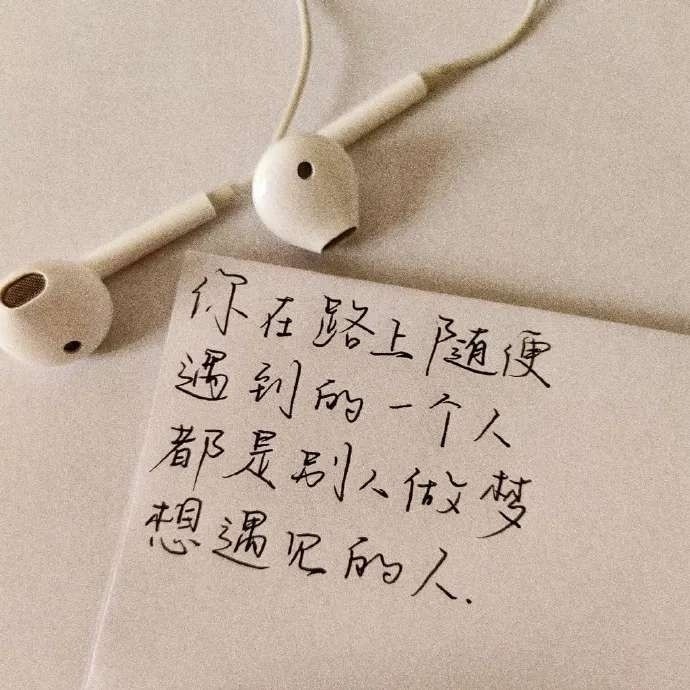 你在路上随便
遇到的一个人
都是别人做梦
想遇见的人.